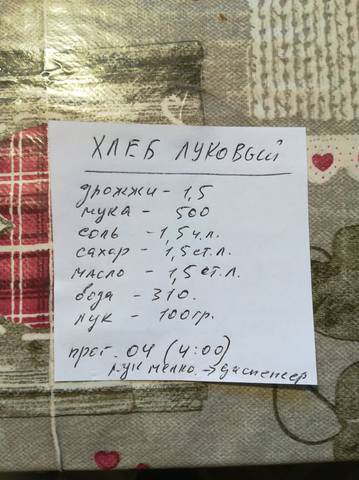 ХЛЕБ ЛУКОВЫЙ
дрожжи - 1,5
мука - 500
соль - 1,5 ч.л.
сахар - 1,5 ст.л.
масло - 1,5 ст.л.
вода - 310.
лук - 100гр.
прог. 04 (4:00)
лук мелко. → диспенсер